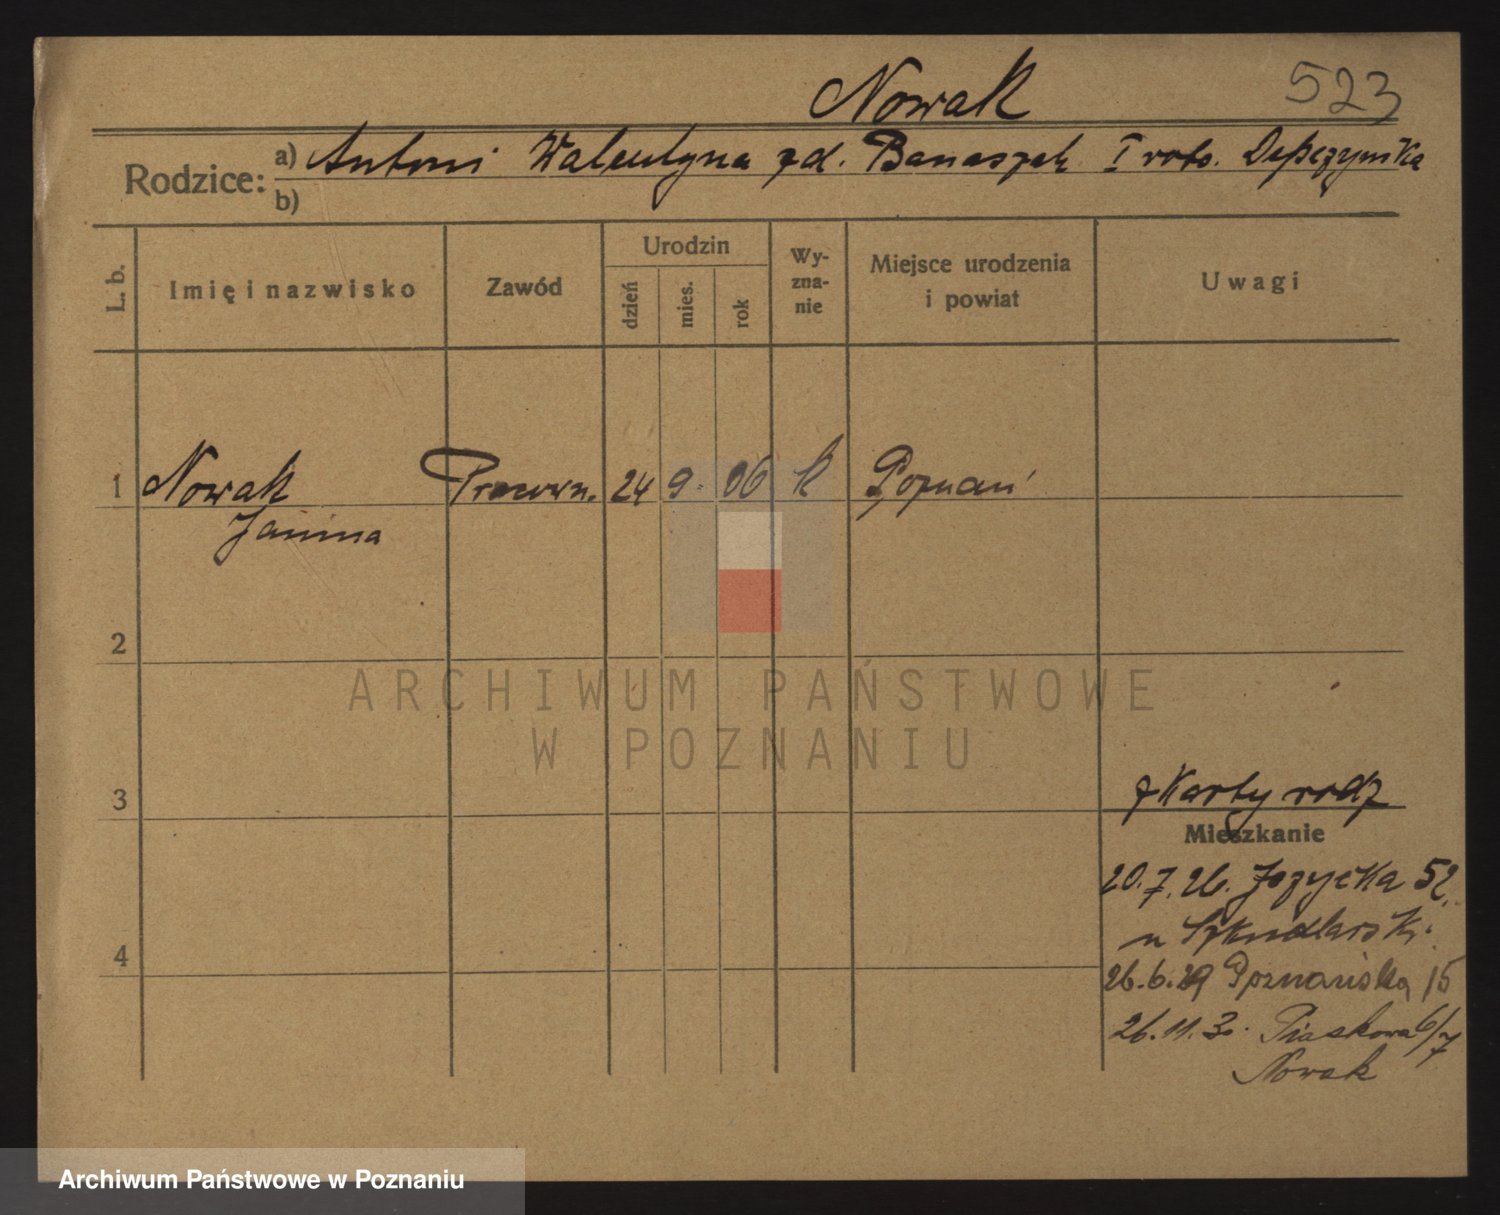 Nowak 523
Rodzice: a) Antoni Walentyna zd. Banaszak I voto.
b)
L. b. Imię i nazwisko Zawód Urodzin dzień mies. rok Wy-zna-nie Miejsce urodzenia i powiat Uwagi
1 Nowak Pracown. 24 9. 06 k Poznań
Janina
2
ARCHIWUM PAŃSTWOWE
W POZNANIU
z Karty rodz
3
Mieszkanie
20.7.26. 52
u Szkudlarski.
4
26.6.29 Poznańska 15
26.11.30. Piaskowa 6/7
Nowak
Archiwum Państwowe w Poznaniu